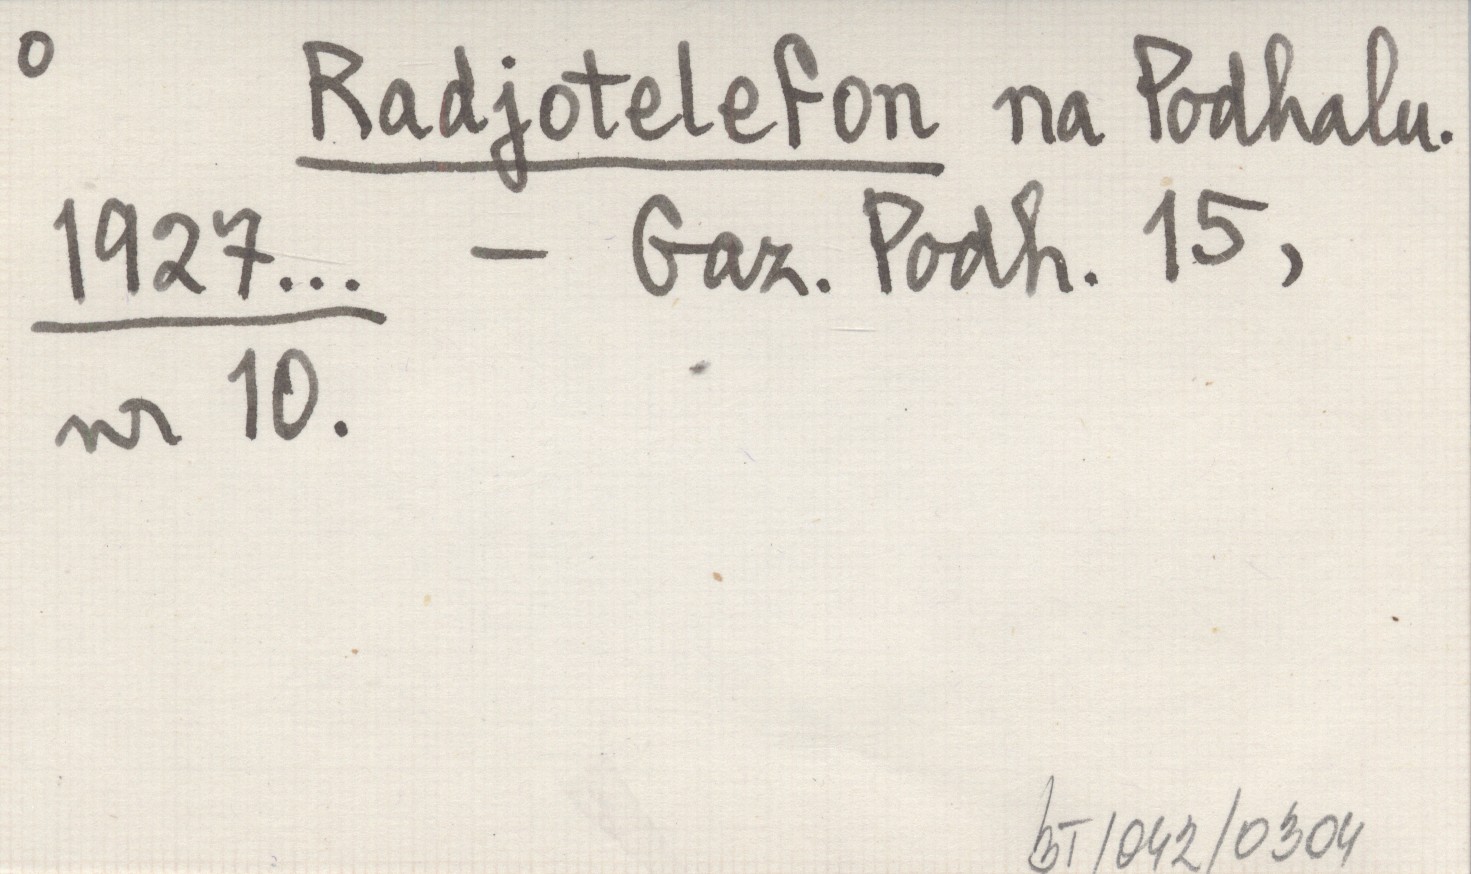 o Radjotelefon na Podhalu.
1927... – Gaz. Podh. 15,
nr 10.
bT/042/0304